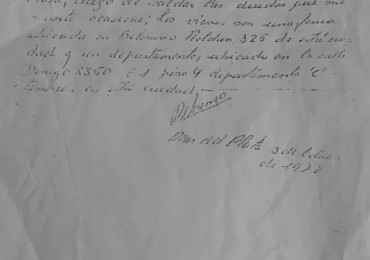 luego de saldar las deudas que mi
muerte ocasione; los bienes son una finca
ubicada en Belisario Roldan, 325 de esta ciu-
dad y un departamento, ubicado en la calle
5560 piso 4 departamento "C"
en esta ciudad.
Mar del Plata 3 de
de 19